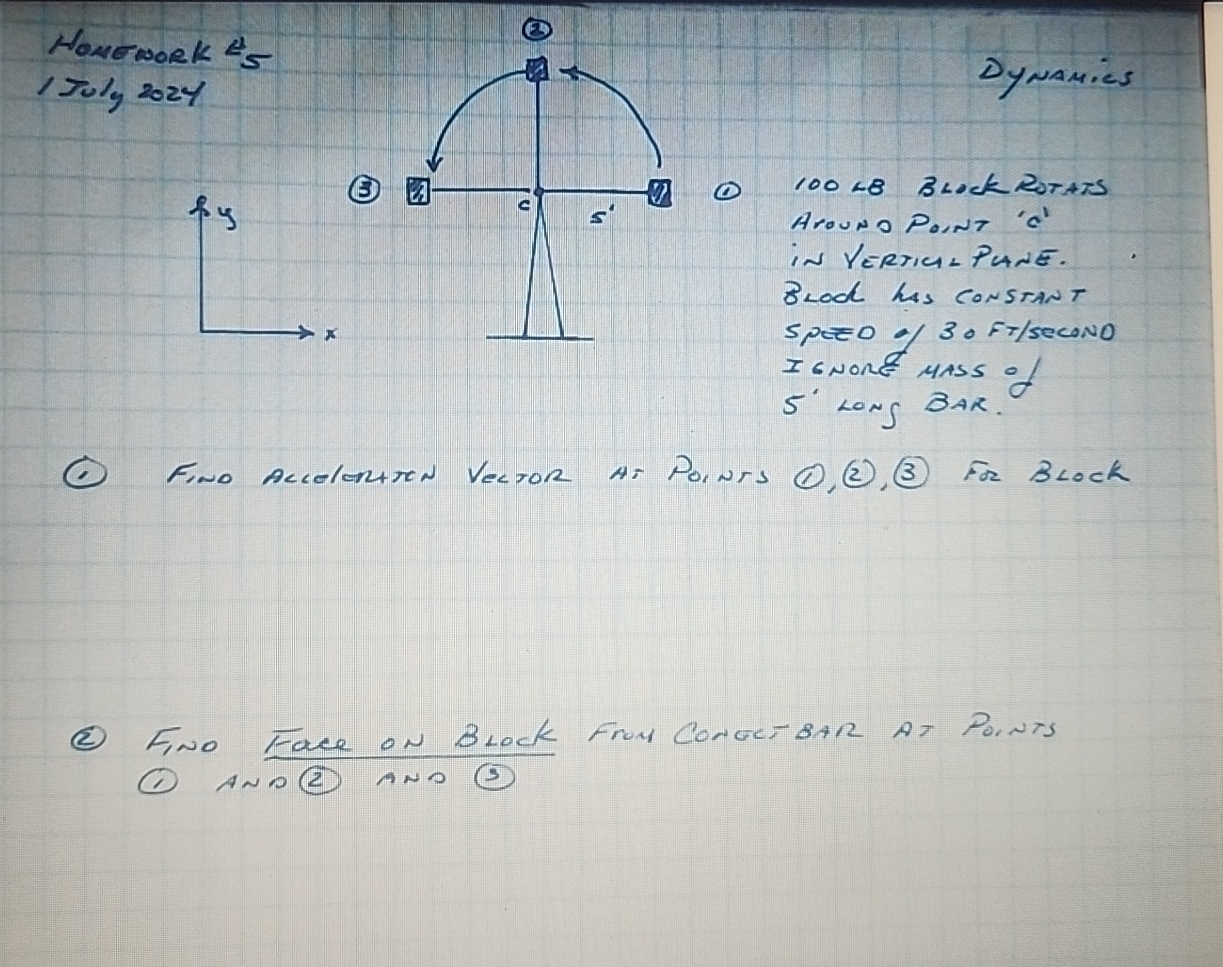 HOMEWORK #5
1 July 2024
DYNAMICS
②
③
①
c
5'
y
x
100 LB BLOCK ROTATS
AROUND POINT 'C'
IN VERTICAL PLANE.
BLOCK has CONSTANT
SPEED of 30 FT/SECOND
IGNORE MASS of
5' LONG BAR.
① FIND ACCELERATEN VECTOR AT POINTS ①, ②, ③ FOR BLOCK
② FIND FORCE ON BLOCK FROM BAR AT POINTS
① AND ② AND ③